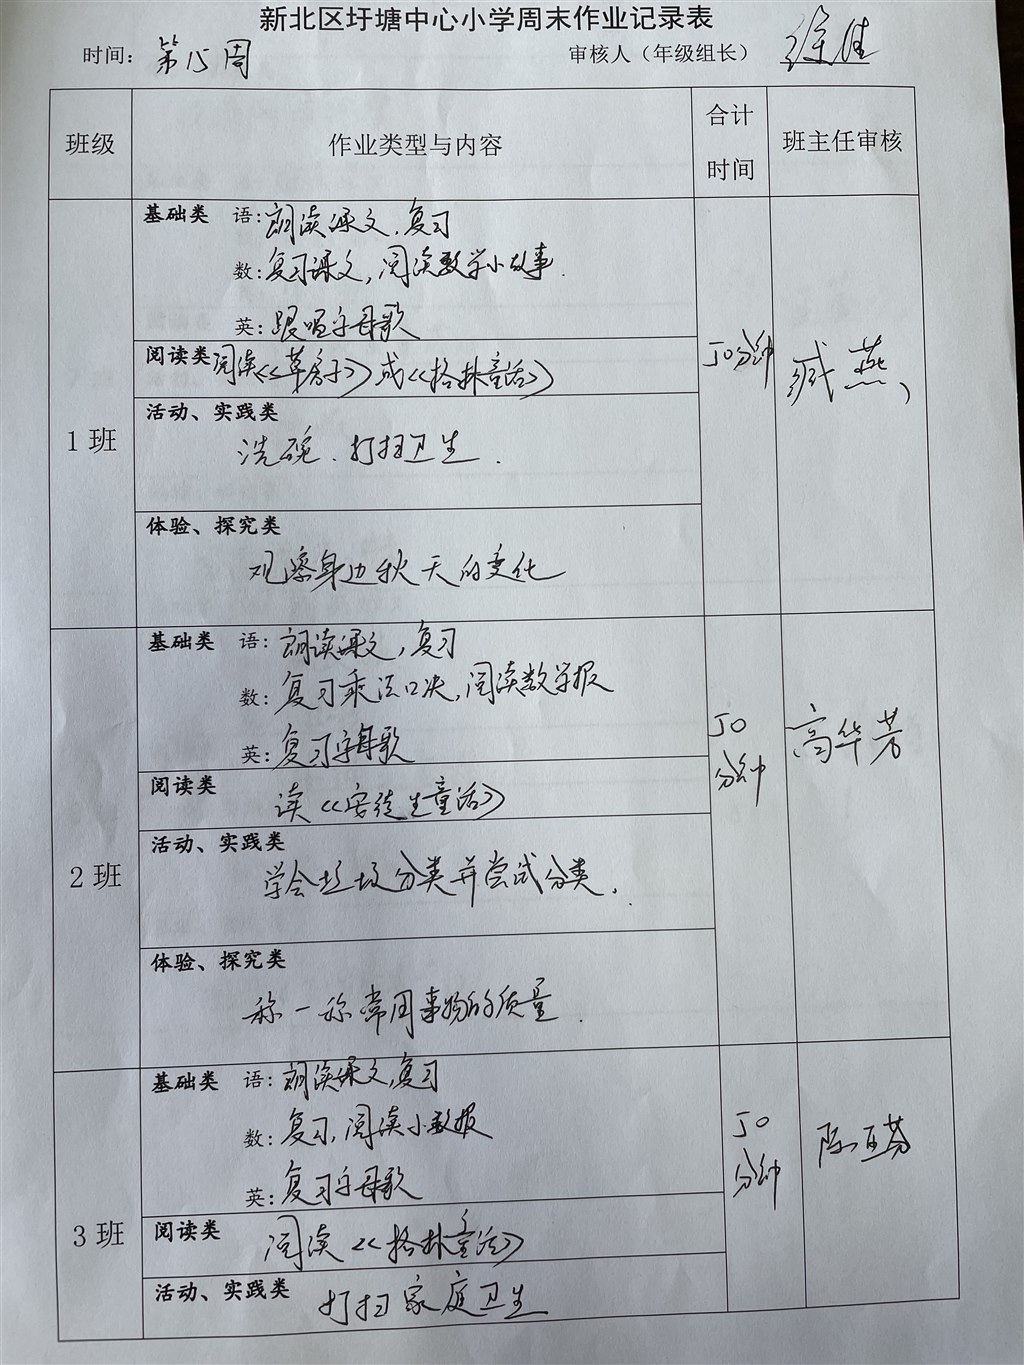 新北区圩塘中心小学周末作业记录表
时间：第15周 审核人（年级组长） 徐佳
班级 作业类型与内容 合计时间 班主任审核
1班
基础类 语：朗读课文，复习
数：复习课文，阅读数学小故事．
英：跟唱字母歌
阅读类 阅读《草房子》或《格林童话》
活动、实践类
洗碗．打扫卫生．
体验、探究类
观察身边秋天的变化
50分钟
臧燕
2班
基础类 语：朗读课文，复习
数：复习乘法口决，阅读数学报
英：复习字母歌
阅读类 读《安徒生童话》
活动、实践类
学会垃圾分类并尝试分类．
体验、探究类
称一称常用事物的质量．
50分钟
高华芳
3班
基础类 语：朗读课文，复习
数：复习，阅读小数报
英：复习字母歌
阅读类 阅读《格林童话》
活动、实践类 打扫家庭卫生
50分钟